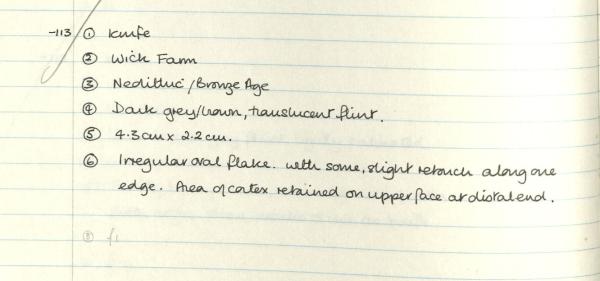 -113 ① Knife
② Wick Farm
③ Neolithic/Bronze Age
④ Dark grey/brown, translucent flint.
⑤ 4.3cm x 2.2cm.
⑥ Irregular oval flake. With some, slight retouch along one
edge. Area of cortex retained on upper face at distal end.